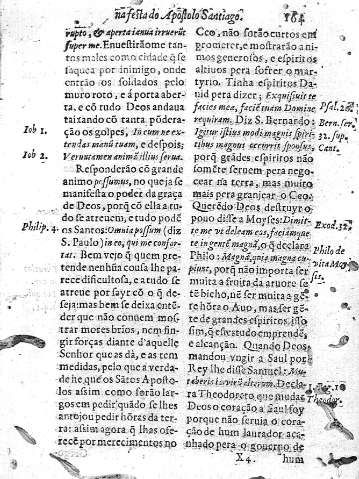 na festa do Apostolo Santiago. 164
rupto, & aperta ianua irruerũt
super me. Enuestirãome tan-
tos males como cidade q̃ se
saquea por inimigo, onde
entrão os soldados pelo
muro roto, & á porta aber-
ta, e cõ tudo Deos andaua
taixando cõ tanta põdera-
ção os golpes, In cum ne ex-
tendas manũ tuam, e despois;
Verumtamen animã illius serua.
Responderão cõ grande
animo possumus, no que ja se
manifesta o poder da graça
de Deos, porq̃ cõ ella a tu-
do se atreuem, e tudo podẽ
os Santos: Omnia possum (diz
S. Paulo) in eo, qui me confor-
tat. Bem vejo q̃ quem pre-
tende nenhũa cousa lhe pa-
rece dificultosa, e a tudo se
atreue por sayr cõ o q̃ de-
seja: mas bem se deixa enten-
der que não conuem mos-
trar mores brios, nem fin-
gir forças diante d'aquelle
Senhor que as dá, e as tem
medidas, pelo que a verda-
de he que os Sãtos Aposto-
los assim como forão lar-
gos em pedir quãdo se lhes
antojou pedir hõras da ter-
ra: assim agora q̃ lhas ofe-
recẽ por merecimentos no
Iob 1.
Iob 2.
Philip. 4.
Ceo, não forão curtos em
prometer, e mostrarão a ni-
mos generosos, e espiritos
altiuos pera sofrer o mar-
tyrio. Tinha espiritos Da-
uid pera dizer; Exquisiuit te
facies mea, faciẽ tuam Domine
requiram. Diz S. Bernardo:
Igitur istius modi magnis spiri-
tibus magnus occurris sponsus,
porq̃ grãdes espiritos não
somẽte seruem pera nego-
cear na terra, mas muito
mais pera granjear o Ceo.
Querẽdo Deos destruyr o
pouo disse a Moyses: Dimit-
te me vt deleam eos, faciamque
te in gentẽ magnã, o q̃ declara
Philo: Magnã, quia magna cu-
piunt, porq̃ não importa ser
muita a fruita da aruore se
tẽ bicho, nẽ ser muita a gẽ-
te hõra o Auo, mas ser gẽ-
te de grandes espiritos, isso
sim, q̃ se atreua o emprende,
e alcanção. Quando Deos
mandou vngir a Saul por
Rey lhe disse Samuel: Mu-
taberis in virũ alterum. Decla-
ra Theodoreto que mudas
Deos o coração a Saul foy
porque não seruia o cora-
ção de hum laurador aca-
nhado pera o gouerno de
X4. hum
Psal. 26.
Bern. ser.
32. sup.
Cant.
Exod. 32.
Philo de
vita Moy
sis.
Theodor.